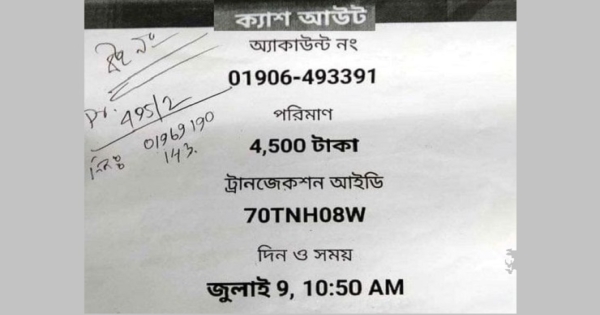 ক্যাশ আউট
অ্যাকাউন্ট নং
01906-493391
পরিমাণ
4,500 টাকা
ট্রানজেকশন আইডি
70TNH08W
দিন ও সময়
জুলাই 9, 10:50 AM
495/2
01969190
143.